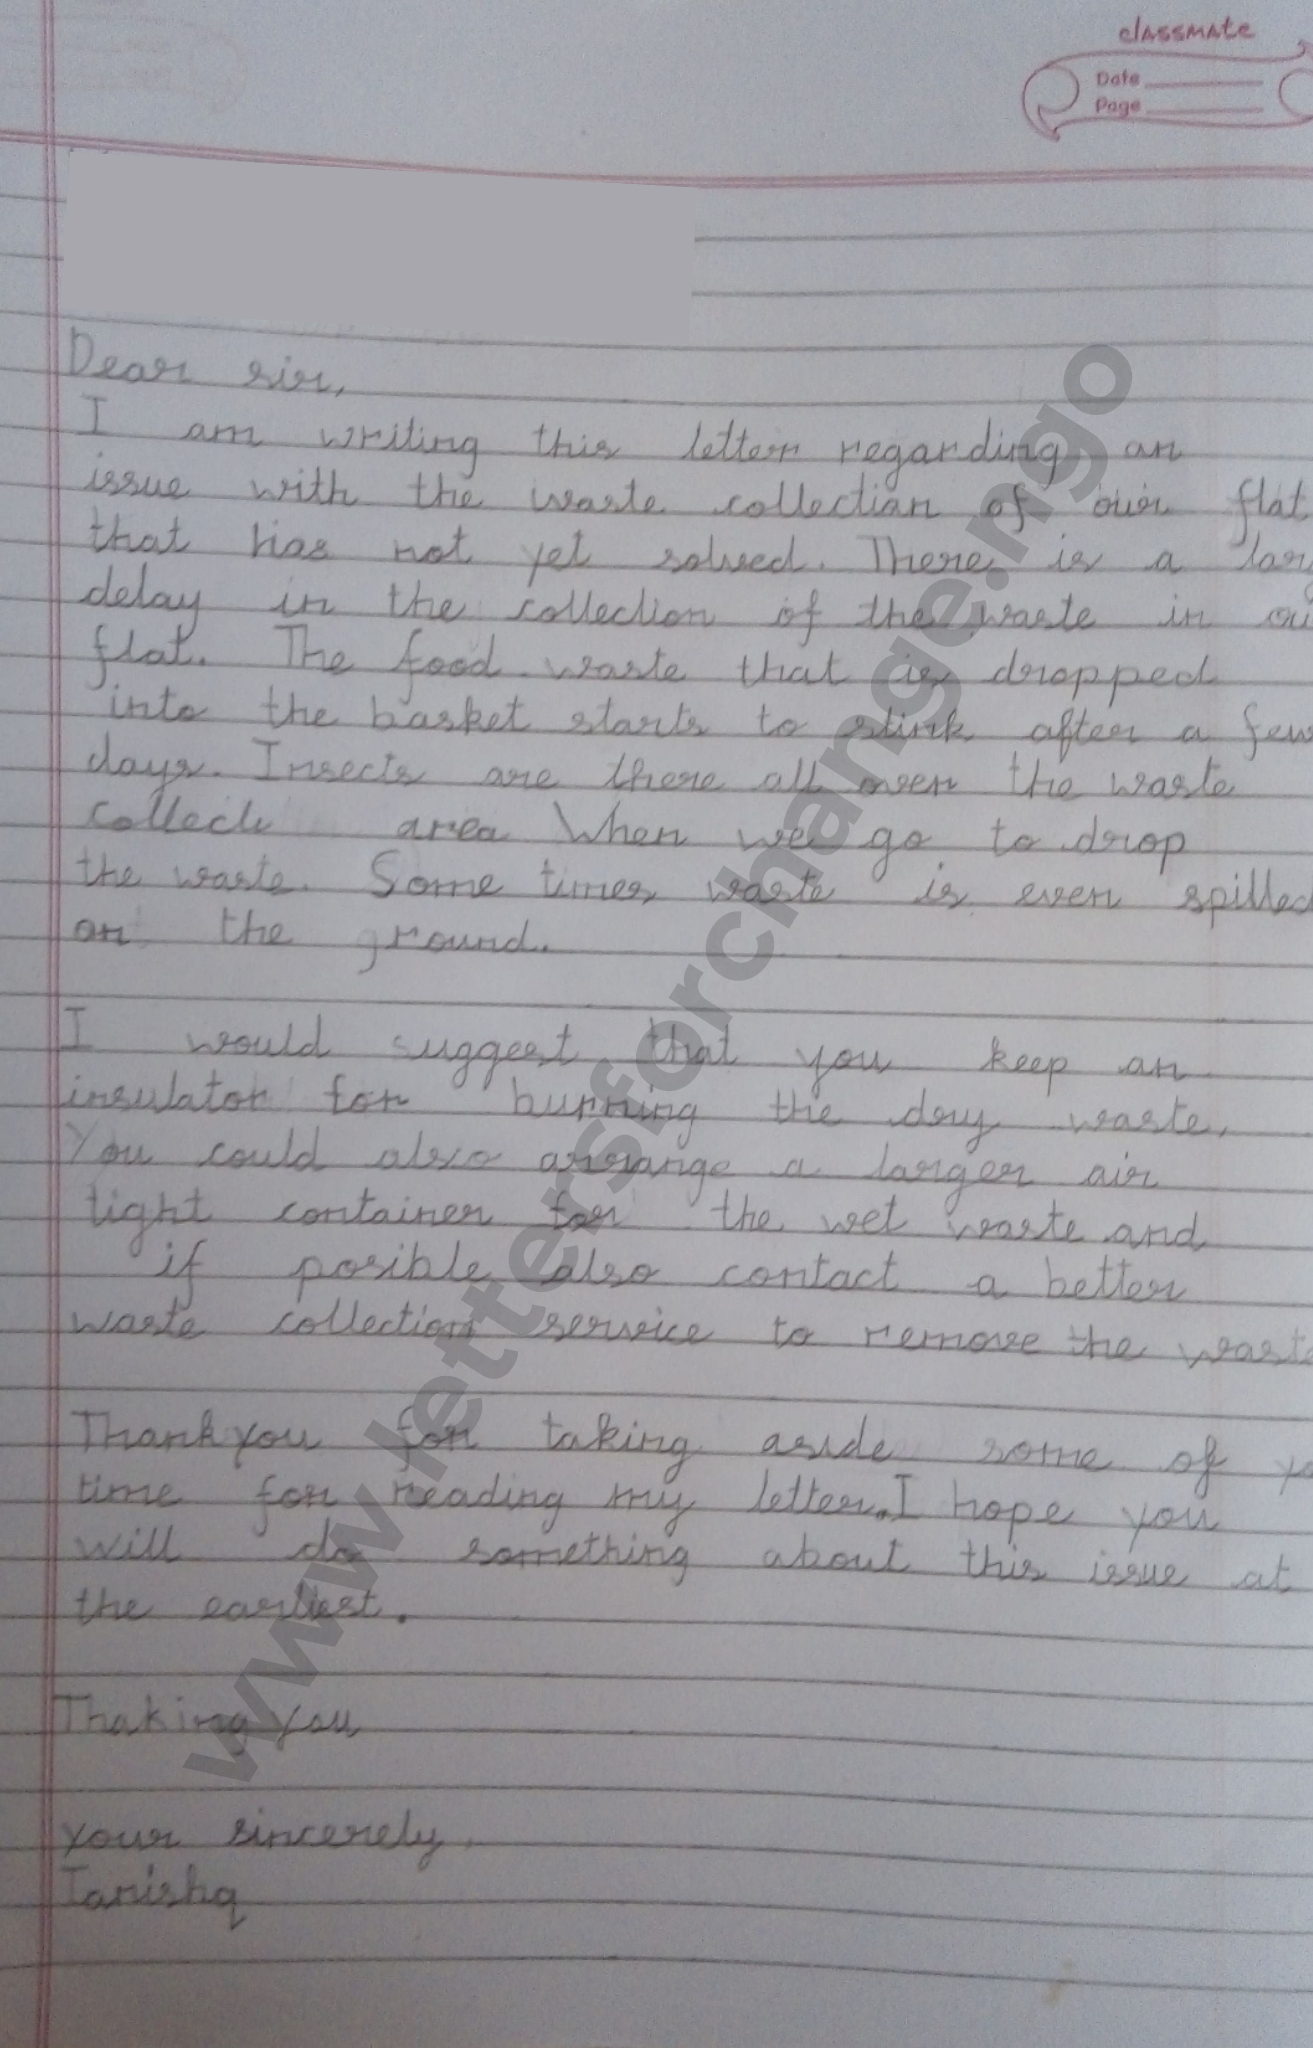 classmate
Date
Page
Dear sir,
I am writing this letter regarding an
issue with the waste collection of our flat
that has not yet solved. There is a
delay in the collection of the waste in
flat. The food waste that is dropped
into the basket starts to stink after a few
days. Insects are there all over the waste
collect area When we go to drop
the waste. Some times waste is even spilled
on the ground.
I would suggest that you keep an
insulator for burning the dry waste.
You could also arrange a larger air
tight container for the wet waste and
if posible also contact a better
waste collection service to remove the waste
Thank you for taking aside some of
time for reading my letter. I hope you
will do something about this issue at
the earliest.
Thaking you
your sincerely,
Tanishq
www.lettersforchange.ngo